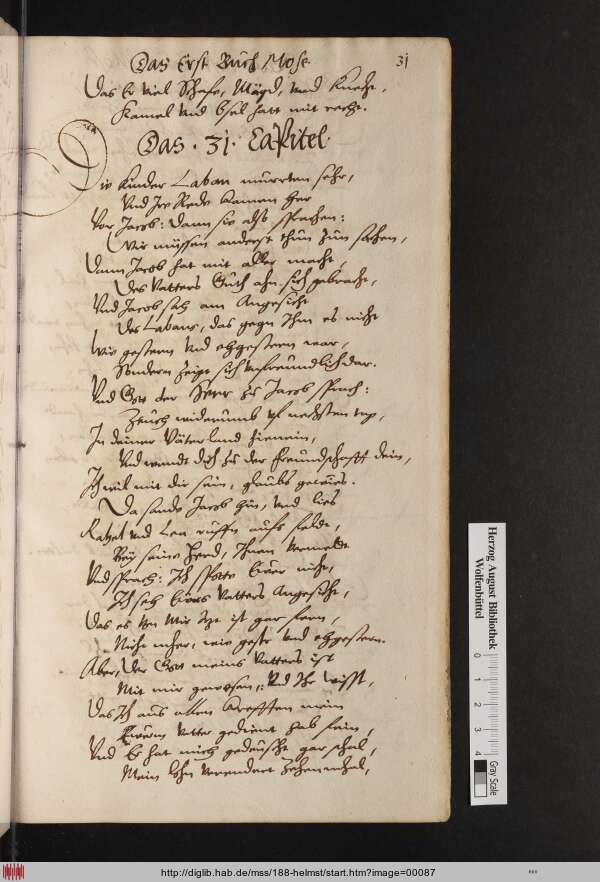 Das Erst Buch Mose
31
Das Er viel Schafe, Mägd, und Knecht,
Kamel und Esel hatt mit recht.
Das . 31 . Capitel.
Die Kinder Laban murrten sehr,
Und Ire Rede kamen her
Vor Jacob: dann sie also sprachen:
Wir müssen anderst thun zun sachen,
Dann Jacob hat mit aller macht,
Des Vatters Guth an sich gebracht,
Und Jacob sah am Angesicht
Des Labans, das gegn Ihm es nicht
Wie gestern und ehgestern war,
Sondern zeigt sich unfreundlich dar.
Und Gott der Herr zu Jacob sprach:
Zeuch widerumb
In deiner Väter land hienein,
Und wendt dich zu der Freundschafft dein,
Ich wil mit dir sein, glaubs gewis.
Da sandt Jacob hin, und lies
Rahel und Lea ruffn aufs Feldt,
Bey seine Herd, Ihnen vermeldt
Und sprach: Ich spotte Euer nicht,
Ich seh Euers Vatters Angesicht,
Das es von Mir itzt ist gar fern,
Nicht mher, wie gestr und ehgestern.
Aber, der Gott meins Vatters ist
Mit mir gewesen, Und Ihr wisst,
Das Ich aus allen Krefften mein
Euerm Vatter gedient hab fein,
Und Er hat mich geteuscht gar
Mein lohn verendert Zehenmahl,
Herzog August Bibliothek
Wolfenbüttel
0 1 2 3 4
Gray Scale
http://diglib.hab.de/mss/188-helmst/start.htm?image=00087